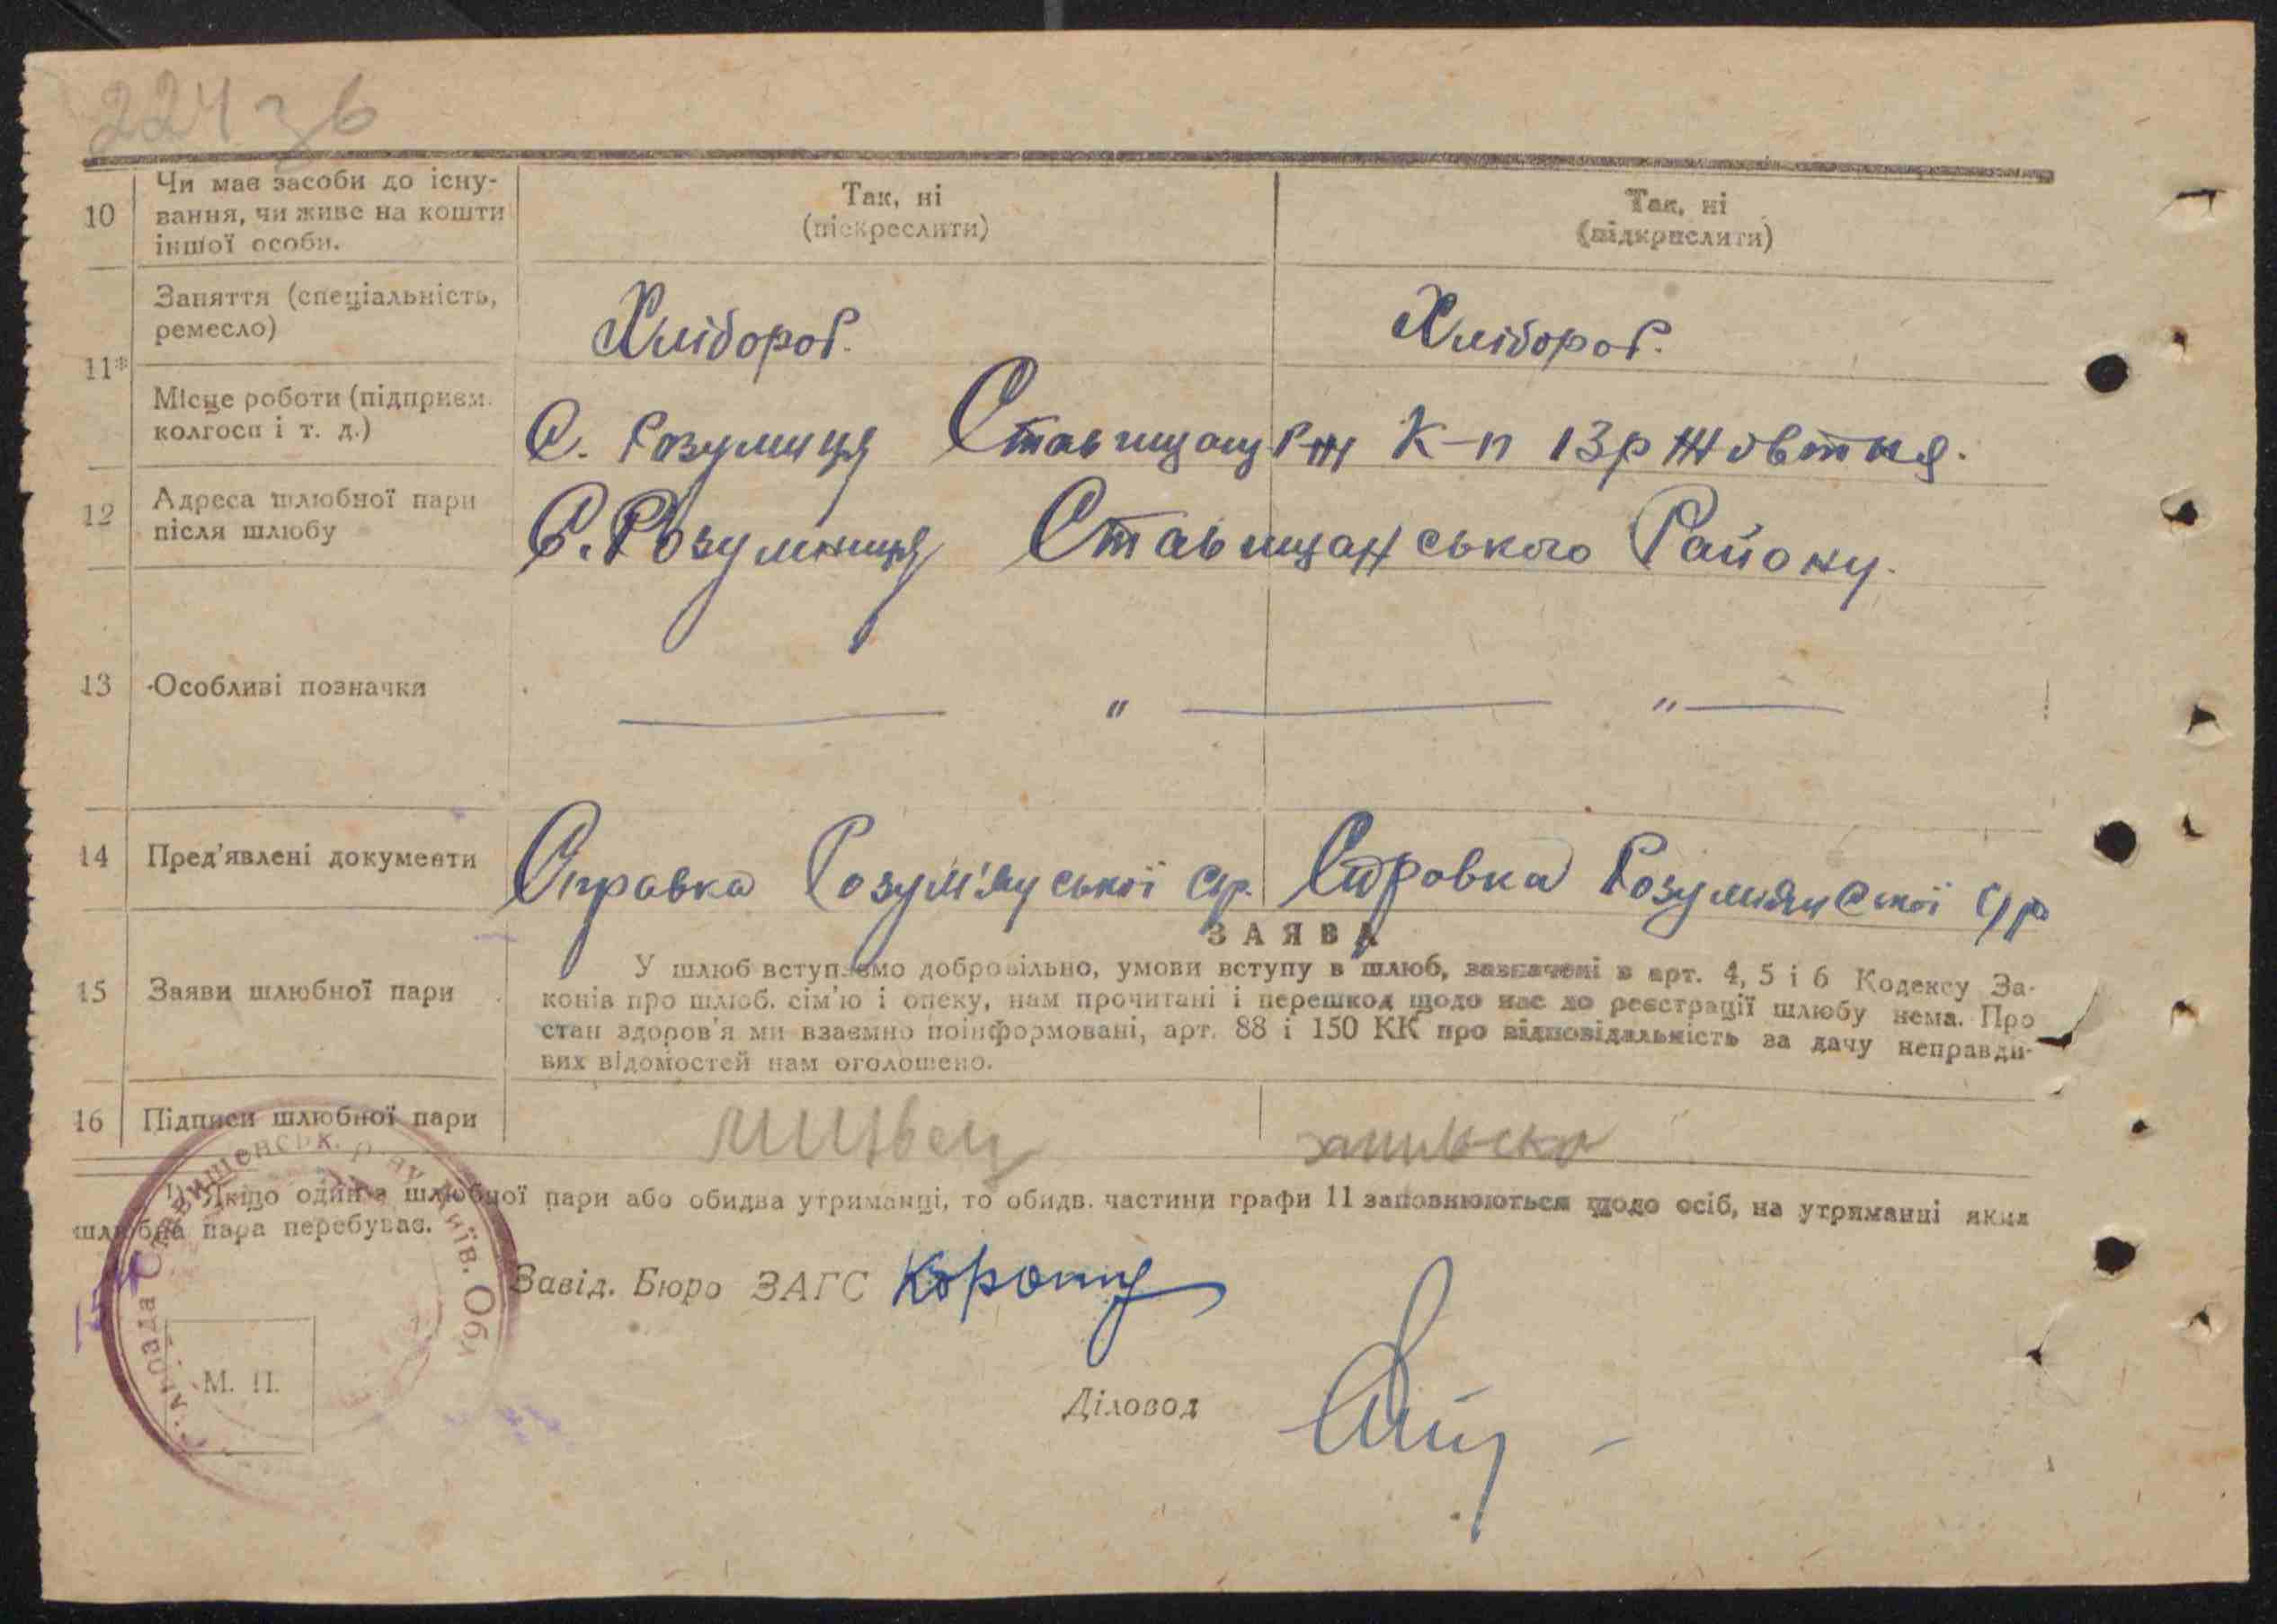 224 зв
10
Чи має засоби до існу-
вання, чи живе на кошти
іншої особи.
Так, ні
(піскреслити)
Так, ні
(підкрислити)
11*
Заняття (спеціальність,
ремесло)
Хлібороб.
Хлібороб.
Місце роботи (підприєм.
колгосп і т. д.)
С. Розумиця Ставищан р-н К-п 13р Жовтня.
12
Адреса шлюбної пари
після шлюбу
С. Розумниця Ставищанського Району.
13
Особливі позначки
— " — " —
14
Пред'явлені документи
Справка Розум'януської с/р.
Справка Розумянуської с/р
15
Заяви шлюбної пари
ЗАЯВА
У шлюб вступаємо добровільно, умови вступу в шлюб, зазначені в арт. 4, 5 і 6 Кодексу За-
конів про шлюб. сім'ю і опеку, нам прочитані і перешкод щодо нас до реєстрації шлюбу нема. Про
стан здоров'я ми взаємно поінформовані, арт. 88 і 150 КК про відповідальність за дачу неправди-
вих відомостей нам оголошено.
16
Підписи шлюбної пари
¹) Якщо один з шлюбної пари або обидва утриманці, то обидв. частини графи 11 заповнюються щодо осіб, на утриманні яких
шлюбна пара перебуває.
Завід. Бюро ЗАГС
Діловод
М. П.
Сільрада Ставищенськ. р-ну Київ. Обл